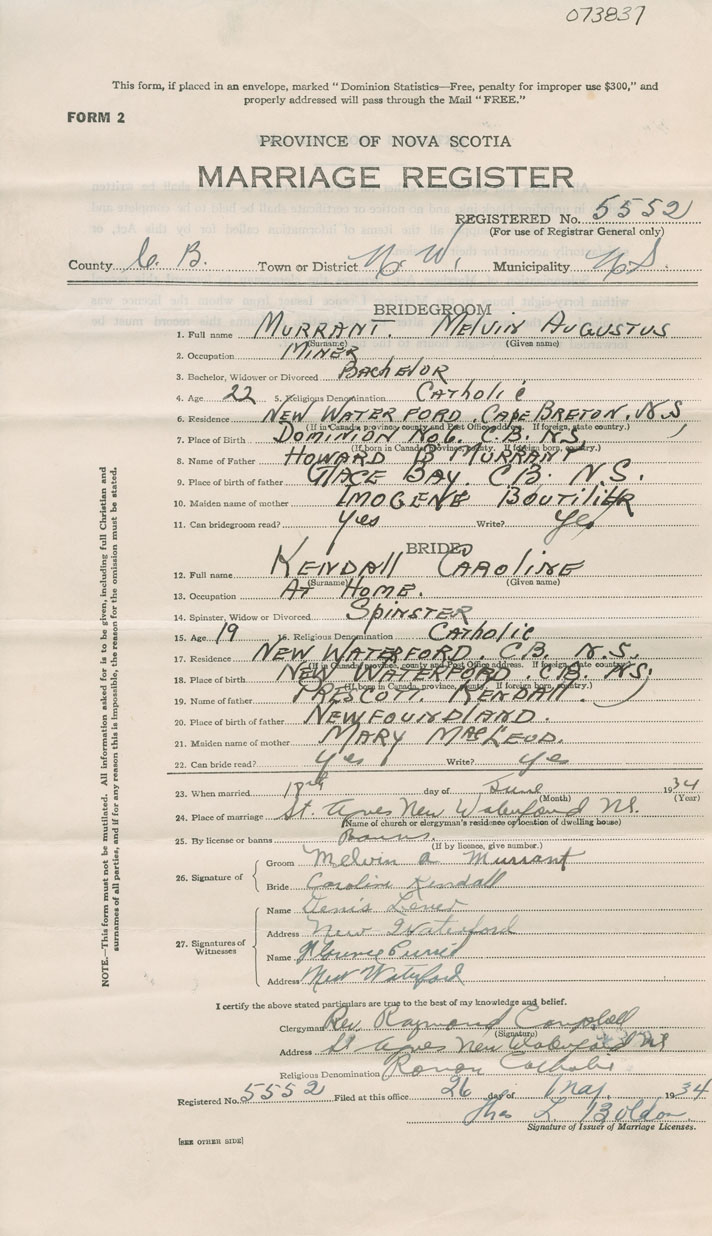 073837
This form, if placed in an envelope, marked "Dominion Statistics—Free, penalty for improper use $300," and
properly addressed will pass through the Mail "FREE."
FORM 2
PROVINCE OF NOVA SCOTIA
MARRIAGE REGISTER
REGISTERED No. 5552
(For use of Registrar General only)
County C. B. Town or District N. W. Municipality N.S.
BRIDEGROOM
1. Full name MURRANT. MELVIN AUGUSTUS
(Surname) (Given name)
2. Occupation MINER
3. Bachelor, Widower or Divorced BACHELOR
4. Age 22 5. Religious Denomination CATHOLIC
6. Residence NEW WATERFORD. CAPE BRETON. N.S
(If in Canada, province, county and Post Office address. If foreign, state country.)
7. Place of Birth DOMINION No6. C.B. N.S,
(If born in Canada, province, county. If foreign born, country.)
8. Name of Father HOWARD B MURRANT
9. Place of birth of father GLACE BAY. C.B. N.S.
10. Maiden name of mother IMOGENE BOUTILIER
11. Can bridegroom read? Yes Write? Yes
BRIDE
12. Full name KENDALL CAROLINE
(Surname) (Given name)
13. Occupation AT HOME.
14. Spinster, Widow or Divorced SPINSTER
15. Age 19 16. Religious Denomination CATHOLIC
17. Residence NEW WATERFORD. C.B. N.S.
(If in Canada, province, county and Post Office address. If foreign state country)
18. Place of birth NEW WATERFORD. C.B. N.S,
(If born in Canada, province, county. If foreign born, country.)
19. Name of father PRESCOTT. KENDALL.
20. Place of birth of father NEWFOUNDLAND.
21. Maiden name of mother MARY MACLEOD.
22. Can bride read? Yes Write? Yes
23. When married 18th day of June 1934
(Month) (Year)
24. Place of marriage St. Agnes New Waterford N.S.
(Name of church or clergyman's residence or location of dwelling house)
25. By license or banns Banns.
(If by licence, give number.)
26. Signature of
Groom Melvin A Murrant
Bride Caroline Kendall
27. Signatures of Witnesses
Name Denis
Address New Waterford
Name
Address New Waterford
I certify the above stated particulars are true to the best of my knowledge and belief.
Clergyman Rev. Raymond Campbell
(Signature)
Address St Agnes New Waterford NS
Religious Denomination Roman Catholic
Registered No. 5552 Filed at this office 26 day of May 1934
Thos L.
Signature of Issuer of Marriage Licenses.
[SEE OTHER SIDE]
NOTE.—This form must not be mutilated. All information asked for is to be given, including full Christian and
surnames of all parties, and if for any reason this is impossible, the reason for the omission must be stated.